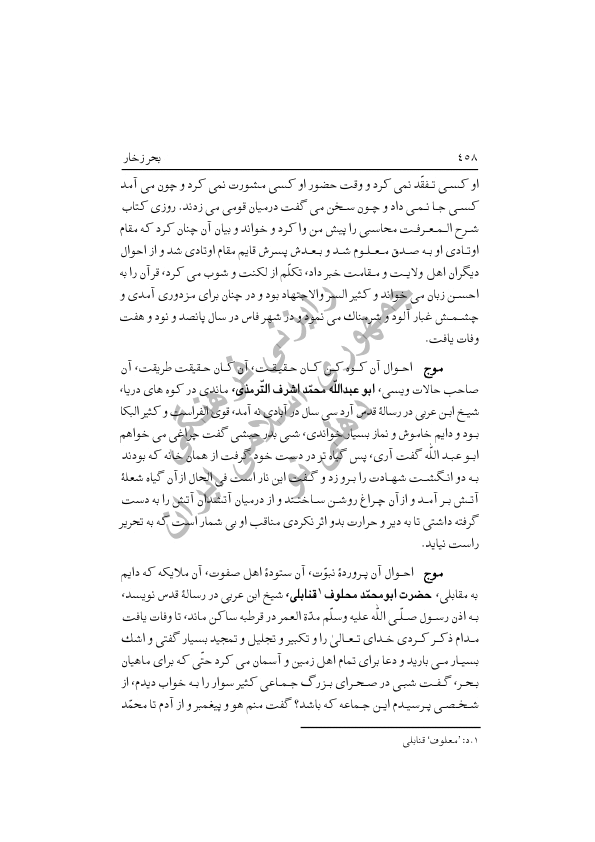 ٤٥٨ بحر زخار
او کسی تفقّد نمی کرد و وقت حضور او کسی مشورت نمی کرد و چون می آمد
کسی جا نمی داد و چون سخن می گفت درمیان قومی می زدند. روزی کتاب
شرح المعرفت محاسبی را پیش من وا کرد و خواند و بیان آن چنان کرد که مقام
اوتادی او به صدق معلوم شد و بعدش پسرش قایم مقام اوتادی شد و از احوال
دیگران اهل ولایت و مقامت خبر داد، تکلّم از لکنت و شوب می کرد، قرآن را به
احسن زبان می خواند و کثیر السر والاجتهاد بود و در چنان برای مزدوری آمدی و
چشمش غبار آلود و شرمناک می نمود و در شهر فاس در سال پانصد و نود و هفت
وفات یافت.
موج احوال آن کوه کن کان حقیقت، آن کان حقیقت طریقت، آن
صاحب حالات ویسی، ابو عبدالله محمّد اشرف التّرمذی، ماندی در کوه های دریا،
شیخ ابن عربی در رسالهٔ قدس آرد سی سال در آبادی نه آمد، قوی الفراست و کثیر البکا
بود و دایم خاموش و نماز بسیار خواندی، شبی بدر حبشی گفت چراغی می خواهم
ابو عبد الله گفت آری، پس گیاه تر در دست خود گرفت از همان خانه که بودند
به دو انگشت شهادت را برو زد و گفت این نار است فی الحال از آن گیاه شعلهٔ
آتش بر آمد و از آن چراغ روشن ساختند و از درمیان آتشدان آتش را به دست
گرفته داشتی تا به دیر و حرارت بدو اثر نکردی مناقب او بی شمار است که به تحریر
راست نیاید.
موج احوال آن پروردهٔ نبوّت، آن ستودهٔ اهل صفوت، آن ملایکه که دایم
به مقابلی، حضرت ابومحمّد محلوف۱ قنابلی، شیخ ابن عربی در رسالهٔ قدس نویسد،
به اذن رسول صلّی الله علیه وسلّم مدّة العمر در قرطبه ساکن ماند، تا وفات یافت
مدام ذکر کردی خدای تعالیٰ را و تکبیر و تجلیل و تمجید بسیار گفتی و اشک
بسیار می بارید و دعا برای تمام اهل زمین و آسمان می کرد حتّی که برای ماهیان
بحر، گفت شبی در صحرای بزرگ جماعی کثیر سوار را به خواب دیدم، از
شخصی پرسیدم این جماعه که باشد؟ گفت منم هو و پیغمبر و از آدم تا محمّد
۱. د: 'معلوف' قنابلی
رایزنی فرهنگی
جمهوری اسلامی ایران
دهلی نو